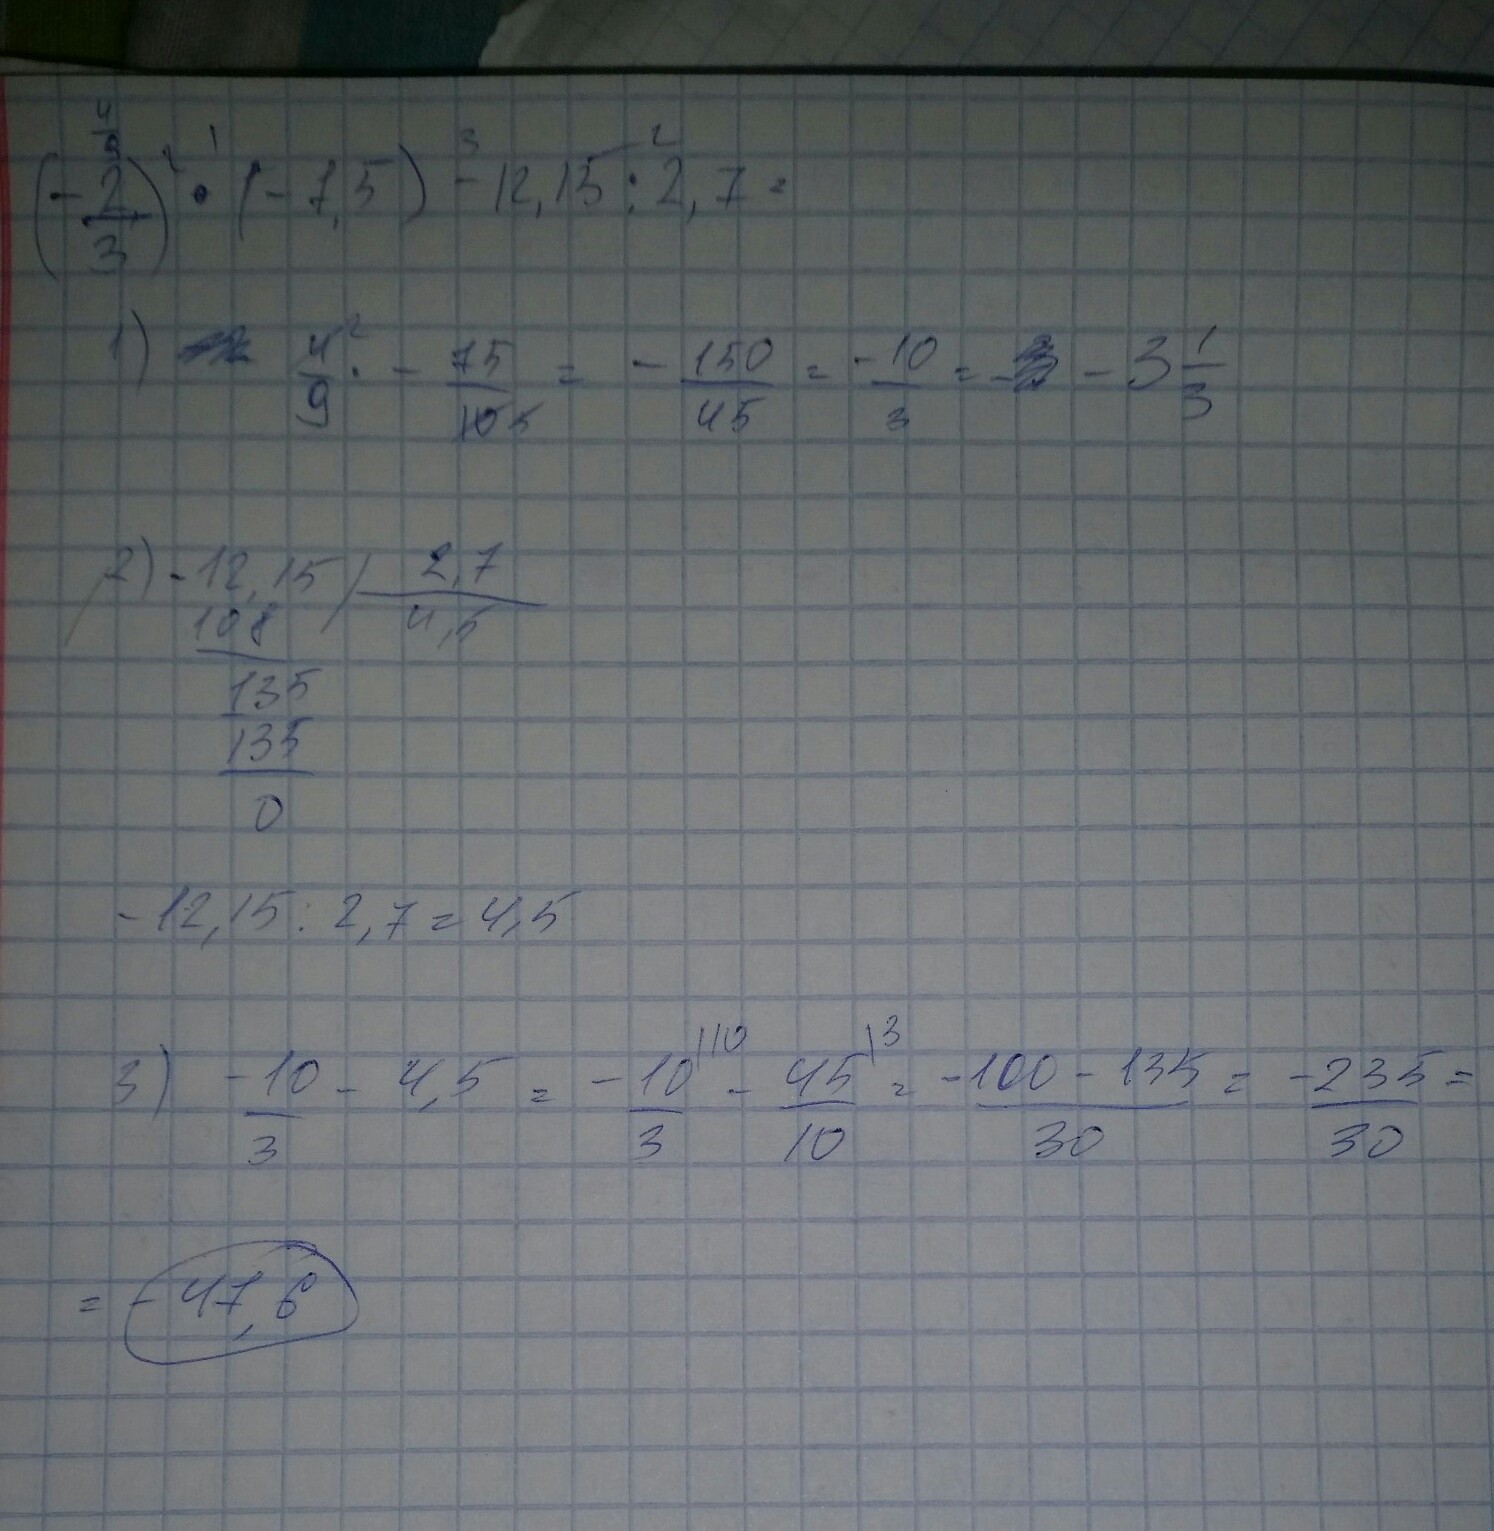 (-2/3)² · (-7,5) - 12,15 : 2,7 =
1) 4/9 · - 75/10 = - 150/45 = -10/3 = - 3 1/3
2) -12,15 | 2,7
108 4,5
135
135
0
-12,15 : 2,7 = 4,5
3) -10/3 - 4,5 = -10/3 |10 - 45/10 |3 = -100 - 135/30 = -235/30 =
= - 47,6